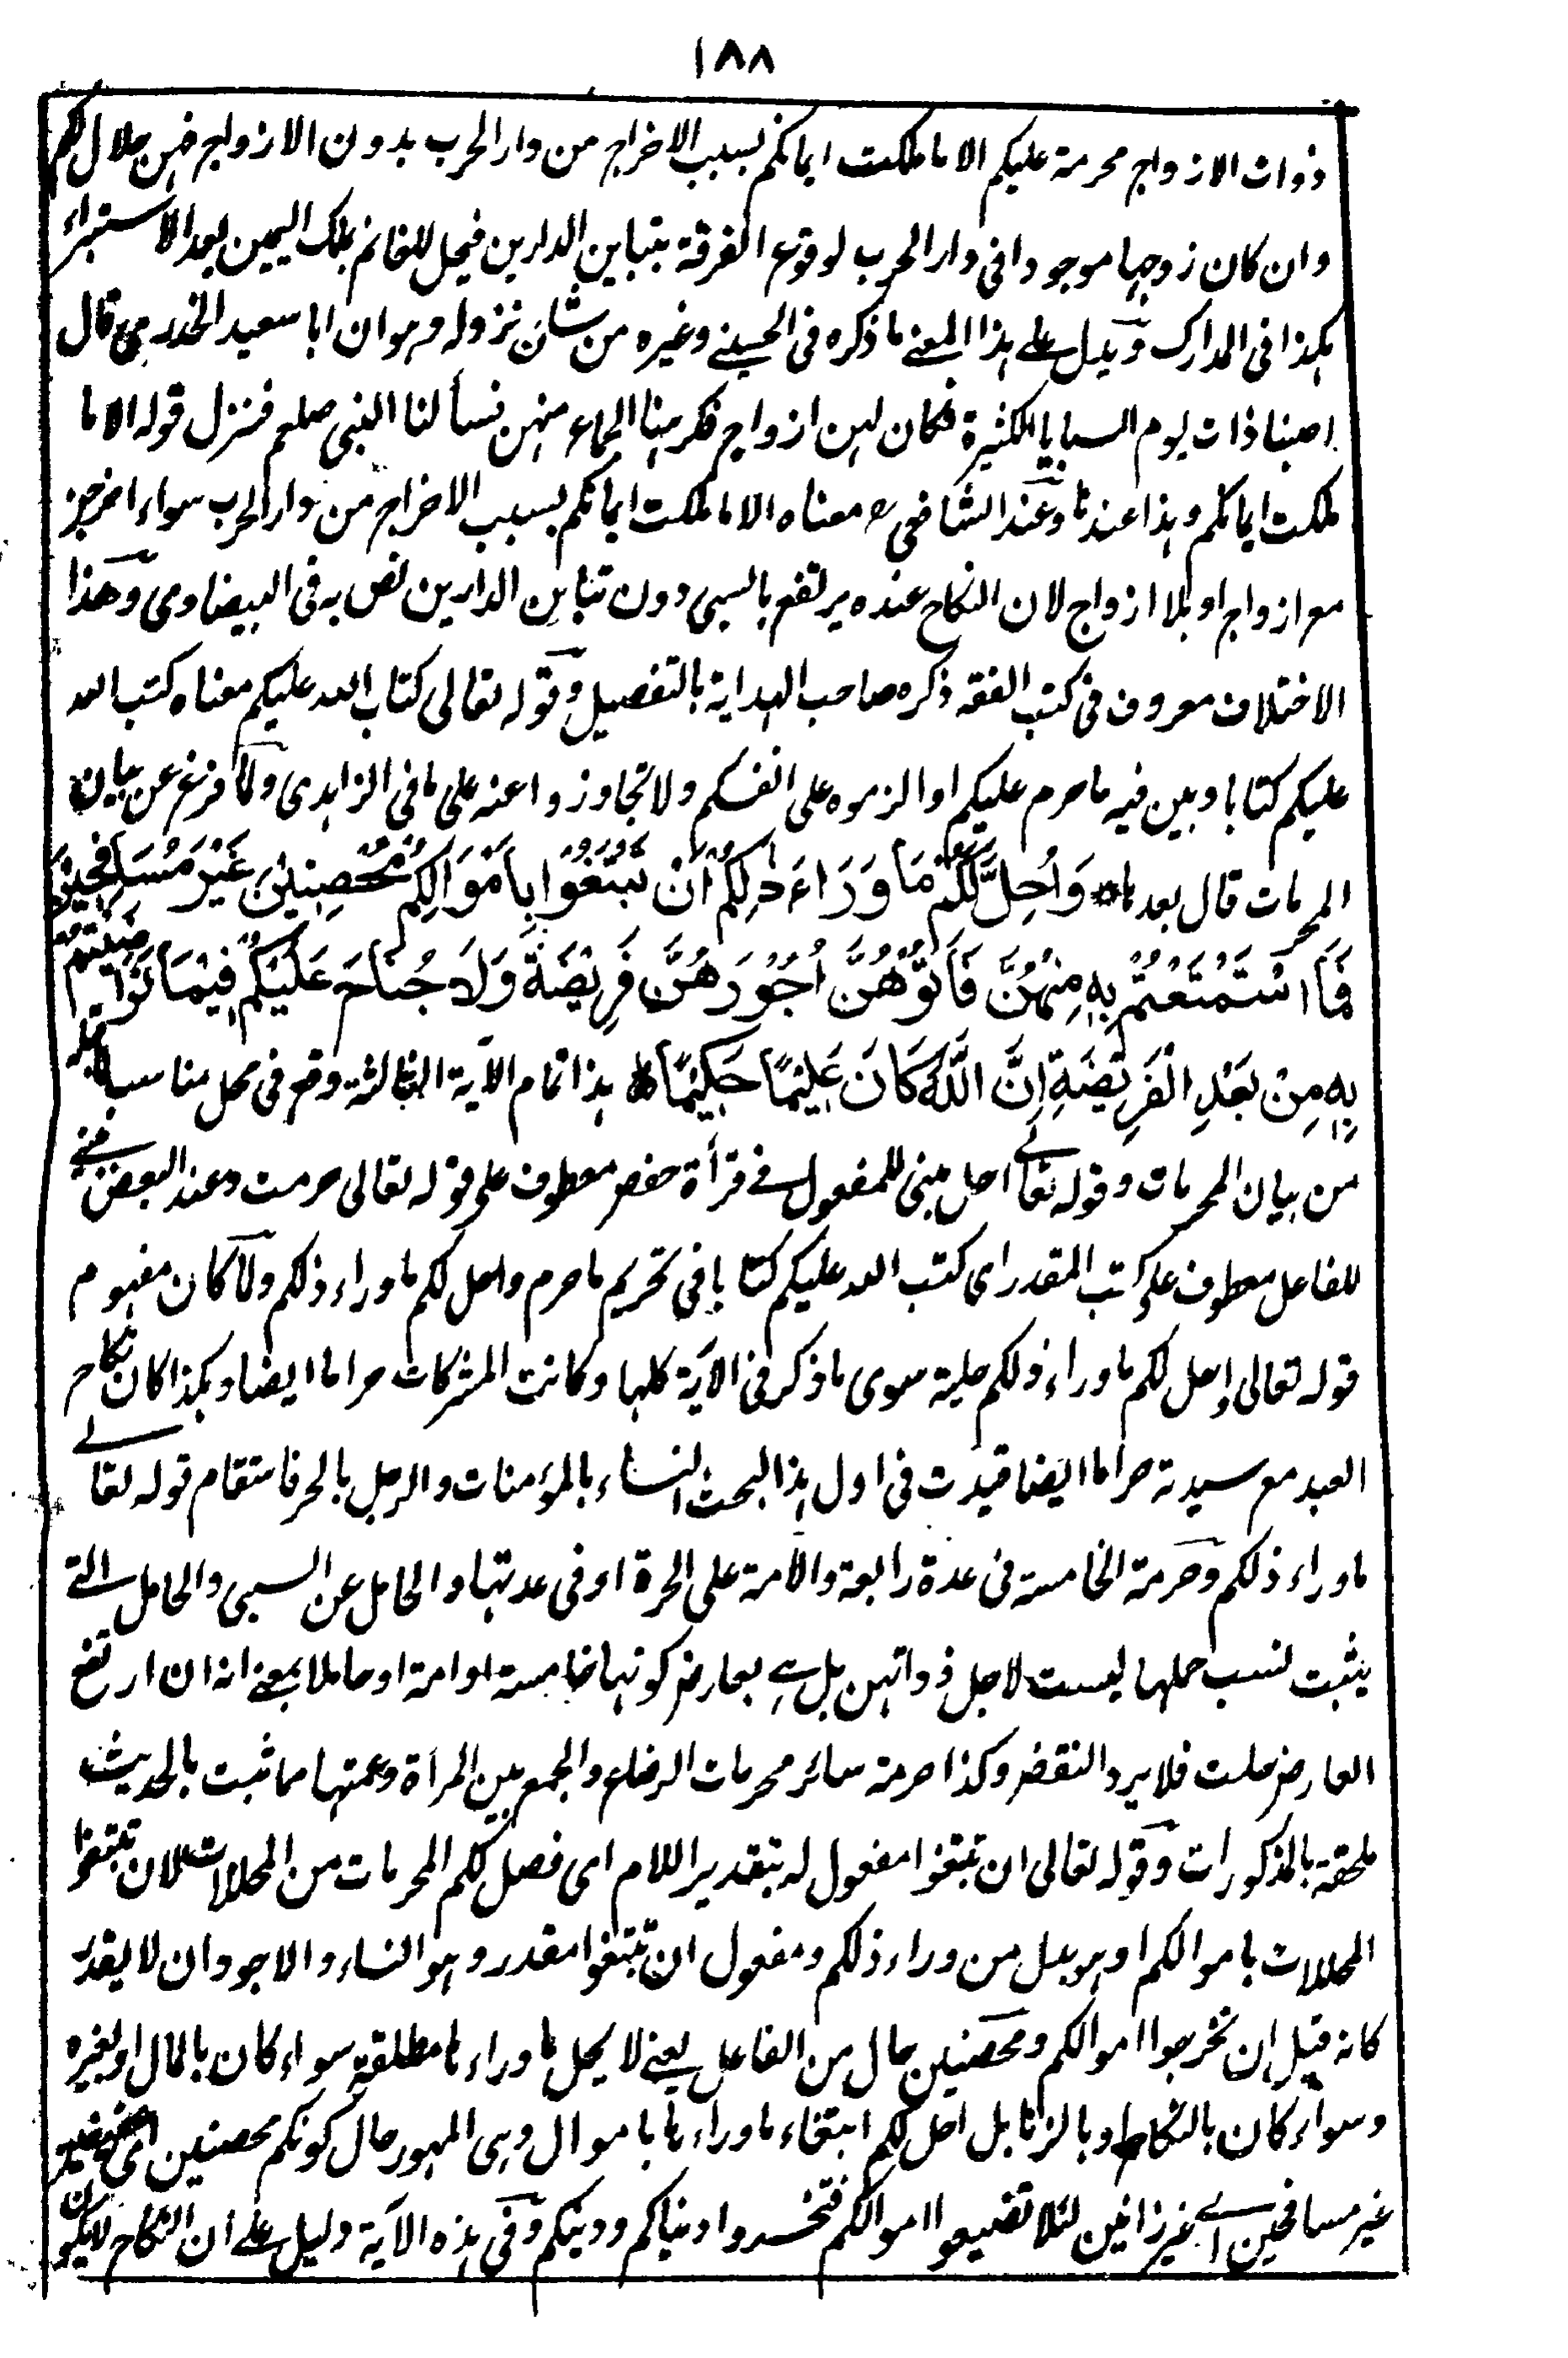 ١٨٨
ذوات الازواج محرمة عليكم الا ما ملكت ايمانكم بسبب الاخراج من دار الحرب بدون الازواج فهن حلال لكم
وان كان زوجها موجودا فى دار الحرب لوقوع الفرقة بتباين الدارين فيحل للغانم بملك اليمين بعد الاستبراء
هكذا فى المدارك ويدل على هذا المعنے ما ذكره فى الحسينے وغيره من شان نزوله وهو ان ابا سعيد الخدرى قال
اصبنا ذات يوم السبايا الكثيرة فكان لهن ازواج فكرهنا الجماع منهن فسألنا النبى صلعم فنزل قوله الا ما
ملكت ايمانكم وهذا عندنا وعند الشافعى رح معناه الا ما ملكت ايمانكم بسبب الاخراج من دار الحرب سواء اخرجن
مع ازواج او بلا ازواج لان النكاح عنده يرتفع بالسبى دون تباين الدارين نص به فى البيضاوى وهذا
الاختلاف معروف فى كتب الفقه ذكره صاحب الهداية بالتفصيل وقوله تعالى كتاب الله عليكم معناه كتب الله
عليكم كتابا وبين فيه ما حرم عليكم او الزموه على انفسكم ولا تجاوزوا عنه على ما فى الزاهدى ولما فرغ عن بيان
المحرمات قال بعدها وَاُحِلَّ لَكُمْ مَا وَرَاءَ ذٰلِكُمْ اَنْ تَبْتَغُوْا بِاَمْوَالِكُمْ مُّحْصِنِيْنَ غَيْرَ مُسَافِحِيْنَ
فَمَا اسْتَمْتَعْتُمْ بِهٖ مِنْهُنَّ فَاٰتُوْهُنَّ اُجُوْرَهُنَّ فَرِيْضَةً وَلَا جُنَاحَ عَلَيْكُمْ فِيْمَا تَرَاضَيْتُمْ
بِهٖ مِنْ بَعْدِ الْفَرِيْضَةِ اِنَّ اللّٰهَ كَانَ عَلِيْمًا حَكِيْمًا هذا تمام الآية الثالثة وقع فى محل مناسب لما قبله
من بيان المحرمات وقوله تعالے احل مبنى للمفعول فے قرأة حفص معطوف على قوله تعالى حرمت وعند البعض مبنے
للفاعل معطوف على كتب المقدر اى كتب الله عليكم كتابا فى تحريم ما حرم واحل لكم ما وراء ذلكم ولما كان مفهوم
قوله تعالى احل لكم ما وراء ذلكم حلية سوى ما ذكر فى الآية كلها وكانت المشركات حراما ايضا وهكذا كان نكاح
العبد مع سيدته حراما ايضا قيدت فى اول هذا البحث النساء بالمؤمنات والرجل بالحر فاستقام قوله تعالے
ما وراء ذلكم وحرمة الخامسة فى عدة رابعة والامة على الحرة او فى عدتها والحامل عن السبى والحامل التے
يثبت نسب حملها ليست لاجل ذواتهن بل هے بعارض كونها خامسة او امة او حاملا بمعنے انه ان ارتفع
العارض حلت فلا يرد النقض وكذا حرمة سائر محرمات الرضاع والجمع بين المرأة وعمتها مما ثبت بالحديث
ملحقة بالمذكورات وقوله تعالى ان تبتغوا مفعول له بتقدير اللام اى فصل لكم المحرمات من المحللات لان تبتغوا
المحللات باموالكم او هو بدل من وراء ذلكم ومفعول ان تبتغوا مقدر وهو النساء والاجود ان لا يقدر
كانه قيل ان تخرجوا اموالكم ومحصنين حال من الفاعل يعنے لا يحل ما وراءها مطلقة سواء كان بالمال او بغيره
وسواء كان بالنكاح او بالزنا بل احل لكم ابتغاء ما وراءها باموال وهى المهور حال كونكم محصنين اى
غير مسافحين اے غير زانين لئلا تضيعوا اموالكم فتخسروا دنياكم ودينكم وفى هذه الآية دليل على ان النكاح لا يكون